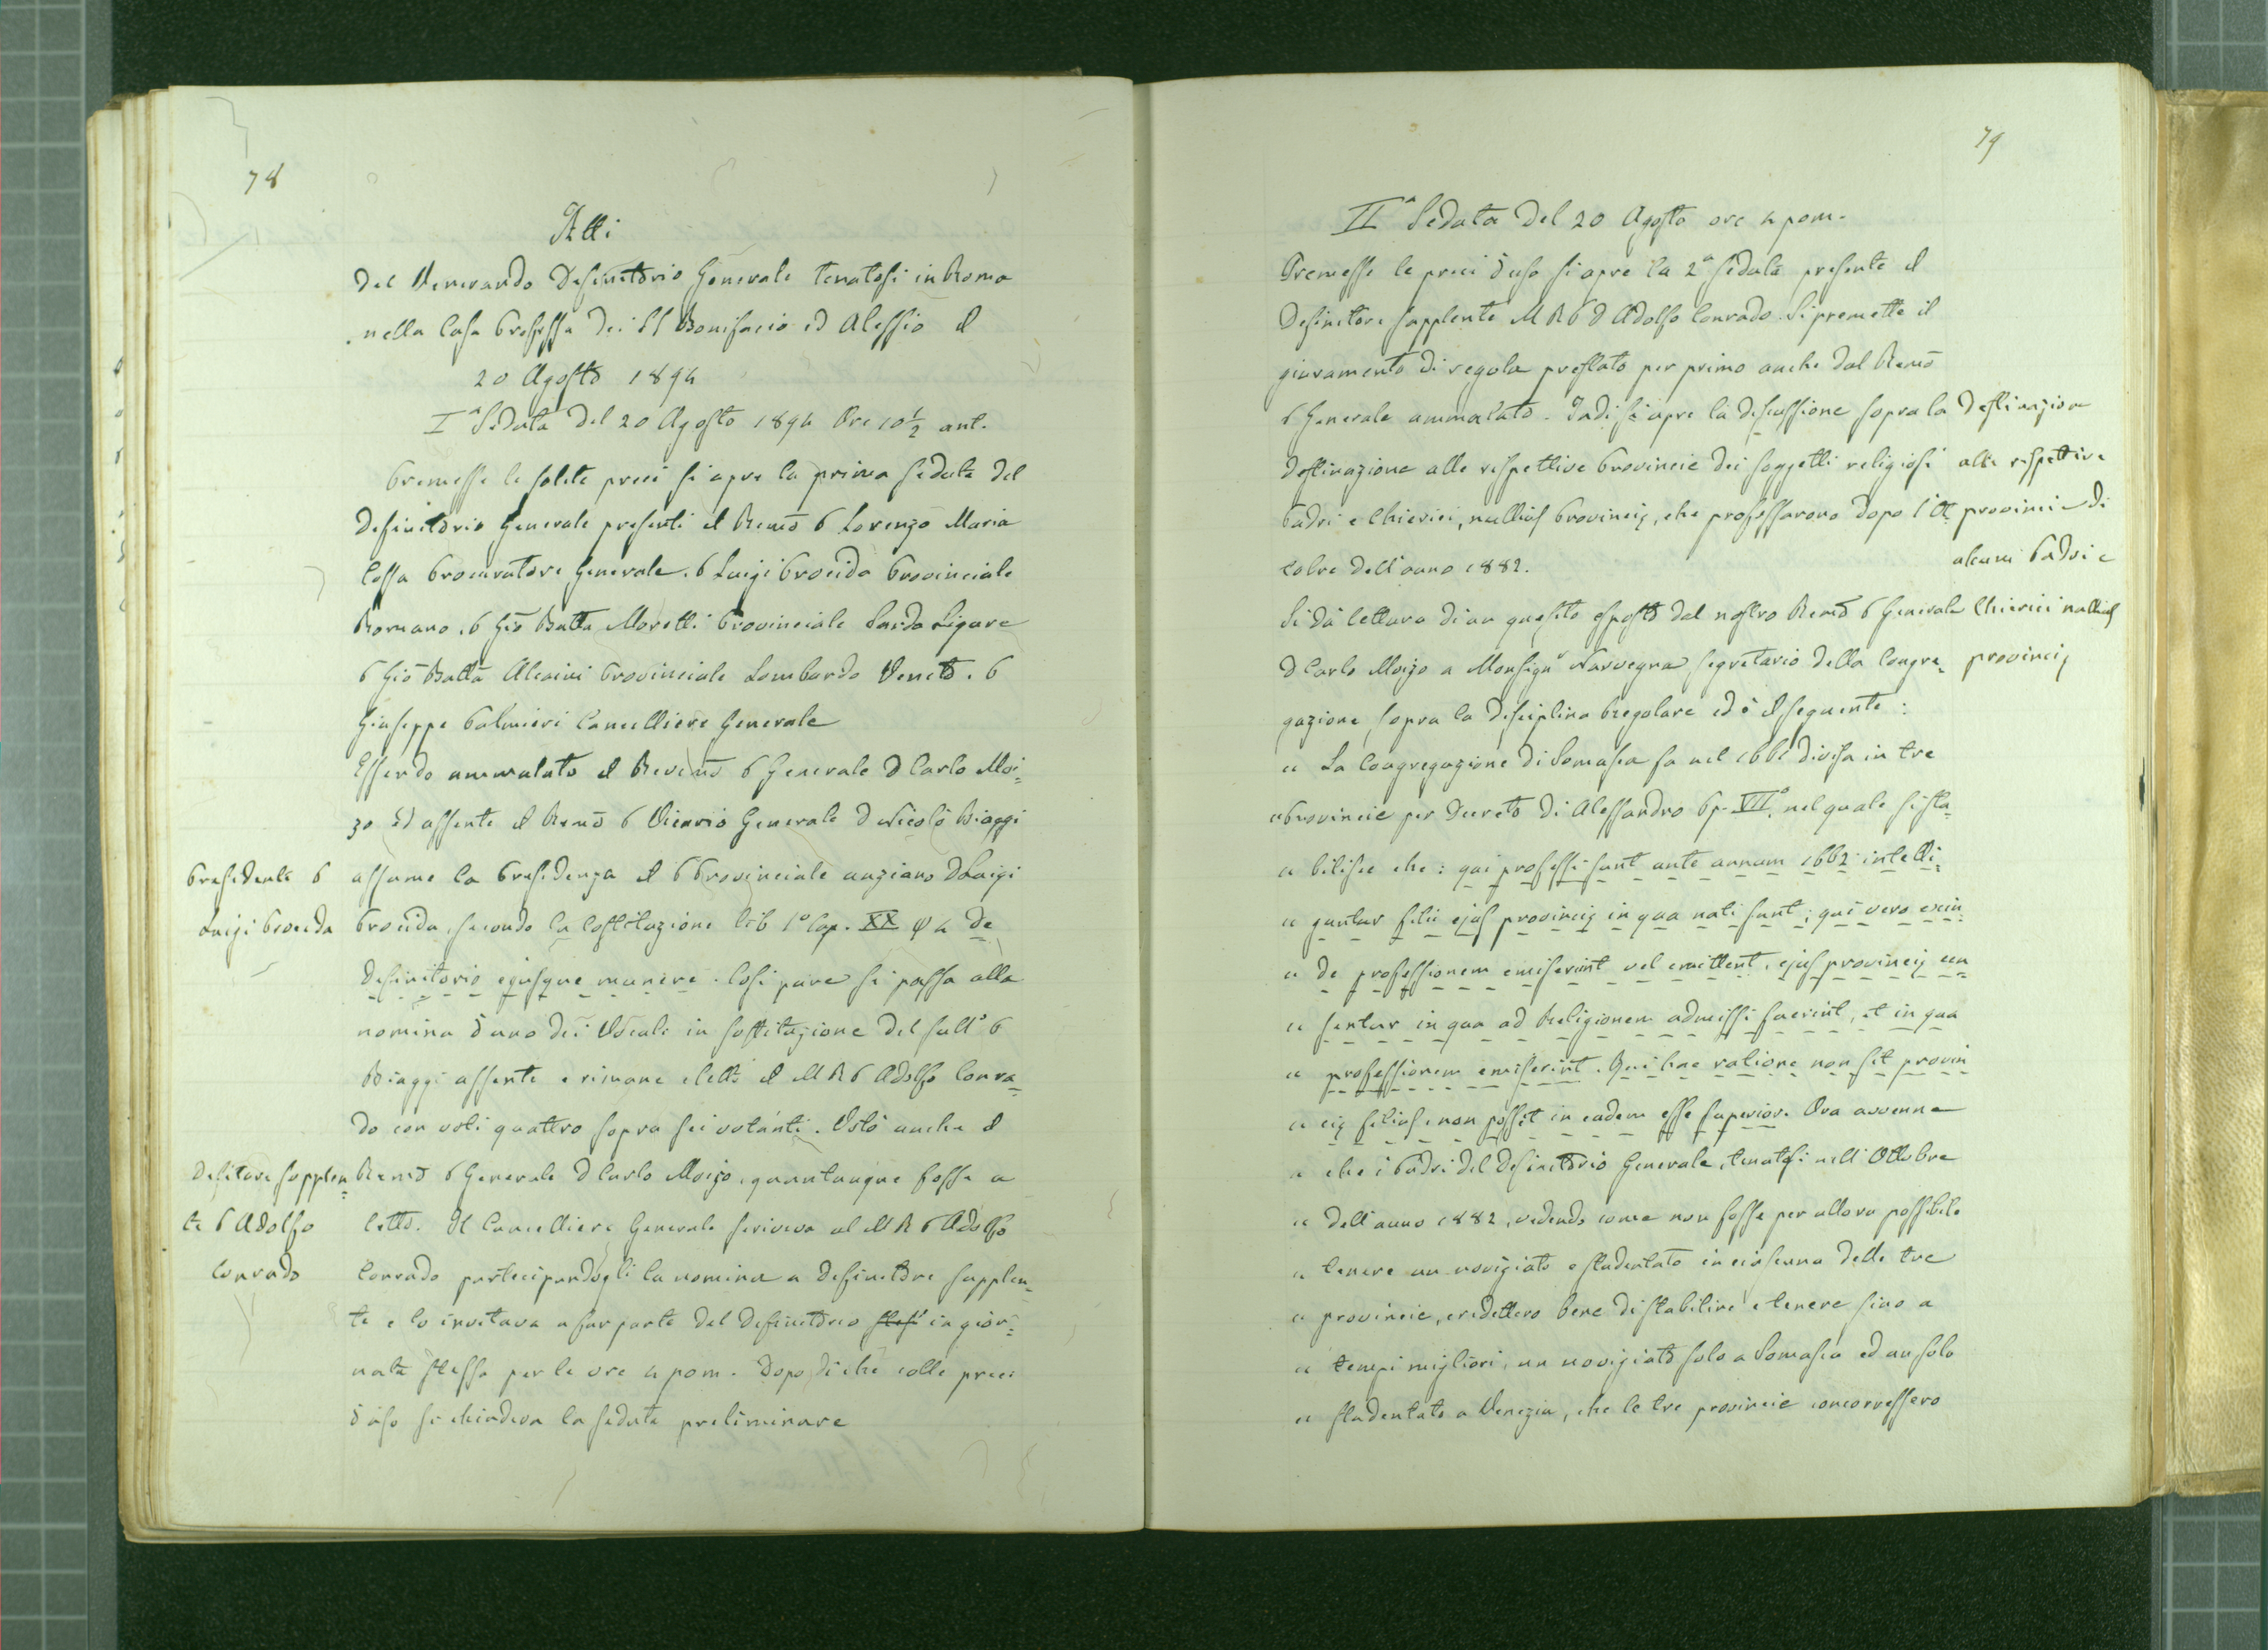 78
Atti
Del Venerando Definitorio Generale tenutosi in Roma
nella Casa Professa dei SS Bonifacio ed Alessio il
20 Agosto 1894
Iª Seduta del 20 Agosto 1894 Ore 10 1/2 ant.
Premesse le solite preci si apre la prima seduta del
Definitorio Generale presenti il Remõ P Lorenzo Maria
Cossa Procuratore Generale. P Luigi Procida Provinciale
Romano. P Gio Batta Moretti Provinciale Sardo Ligure
P Gio Batta Alcaini Provinciale Lombardo Veneto. P
Giuseppe Palmieri Cancelliere Generale
Essendo ammalato il Revemõ P Generale D Carlo Moi=
zo ed assente il Remõ P Vicario Generale D Nicolò Biaggi
Presidente P
Luigi Procida
assume la Presidenza il P Provinciale anziano D Luigi
Procida, secondo la Costituzione lib 1º Cap. XX 4 de
definitorio ejusque munere. Così pure si passa alla
nomina d'uno dei Vocali in sostituzione del sullº P
Biaggi assente e rimane eletto il M R P Adolfo Conra=
do con voti quattro sopra sei votanti. Votò anche il
Defitore supplen=
te P Adolfo
Conrado
Remõ P Generale D Carlo Moizo, quantunque fosse a
letto. Il Cancelliere Generale scriveva al M R P Adolfo
Conrado partecipandogli la nomina a Definitore supplen=
te e lo invitava a far parte del Definitorio in gior=
nata stessa per le ore 4 pom. Dopo di che colle preci
d'uso si chiudeva la seduta preliminare
79
IIª Seduta del 20 Agosto ore 4 pom.
Premesse le preci d'uso si apre la 2ª seduta presente il
Definitore supplente M R P D Adolfo Conrado. Si premette il
giuramento di regola prestato per primo anche dal Remõ
P Generale ammalato. Indi si apre la discussione sopra la
destinazione alle rispettive Provincie dei soggetti religiosi
Padri e Chierici, nullius Provincię, che professarono dopo l'Ot=
tobre dell'anno 1882.
Destinazione
alle rispettive
provincie di
alcuni Padri e
Chierici nullius
provincię
Si dà lettura di un quesito esposto dal nostro Remõ P Generale
D Carlo Moizo a Monsignr Narvegna segretario della Congre=
gazione sopra la disciplina Regolare ed è il seguente:
" La Congregazione di Somasca fu nel 1661 divisa in tre
" Provincie per Decreto di Alessandro Pp. VIIº, nel quale si sta=
" bilisce che: qui professi sunt ante annum 1662 intelli=
" guntur filii ejus provincię in qua nati sunt; qui vero exin=
" de professionem emiserint vel emittent, ejus provincię cen=
" sentur in qua ad Religionem admissi fuerint, et in qua
" professionem emiserint. Qui hac ratione non sit provin
" cię filius, non possit in eadem esse superior. Ora avvenne
" che i Padri del Definitorio Generale, tenutosi nell'Ottobre
" dell'anno 1882, vedendo come non fosse per allora possibile
" tenere un noviziato e studentato in ciascuna delle tre
" provincie, credettero bene di stabilire e tenere sino a
" tempi migliori, un noviziato solo a Somasca ed un solo
" studentato a Venezia, che le tre provincie concorressero